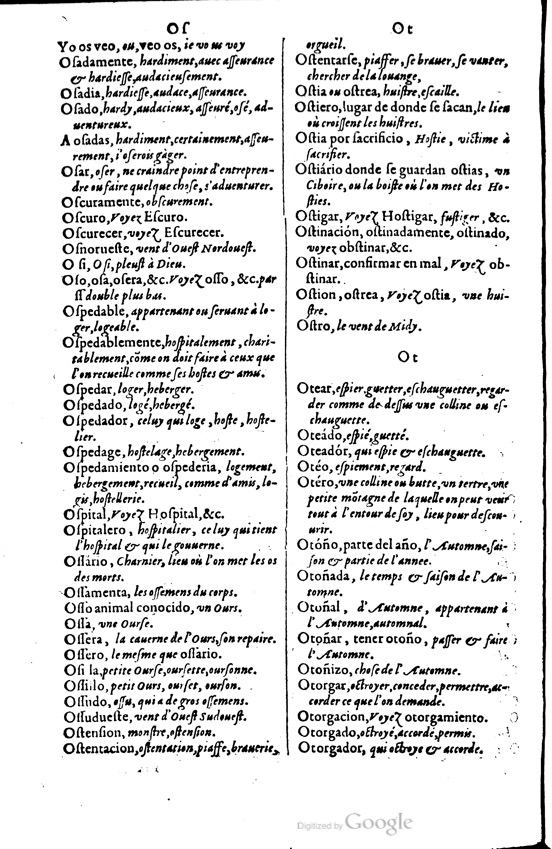 Os
Yo os veo, ou, veo os, ie vous voy
Osadamente, hardiment, auec asseurance
& hardiesse, audacieusement.
Osadia, hardiesse, audace, asseurance.
Osado, hardy, audacieux, asseuré, osé, ad-
uentureux.
A osadas, hardiment, certainement, asseu-
rement, i'oserois gâger.
Osar, oser, ne craindre point d'entrepren-
dre ou faire quelque chose, s'aduenturer.
Oscuramente, obscurement.
Oscuro, Voyez Escuro.
Oscurecer, voyez Escurecer.
Osnorueste, vent d'Ouest Nordouest.
O si, O si, pleust à Dieu.
Oso, osa, osera, &c. Voyez osso, &c. par
ss double plus bas.
Ospedable, appartenant ou seruant à lo-
ger, logeable.
Ospedablemente, hospitalement, chari-
tablement, cõme on doit faire à ceux que
l'on recueille comme ses hostes & amu.
Ospedar, loger, heberger.
Ospedado, logé, hebergé.
Ospedador, celuy qui loge, hoste, hoste-
lier.
Ospedage, hostelage, hebergement.
Ospedamiento o ospederia, logement,
hebergement, recueil, comme d'amis, lo-
gis, hostellerie.
Ospital, Voyez Hospital, &c.
Ospitalero, hospitalier, celuy qui tient
l'hospital & qui le gouuerne.
Ossário, Charnier, lieu où l'on met les os
des morts.
Ossamenta, les ossemens du corps.
Osso animal conocido, vn Ours.
Ossa, vne Ourse.
Ossera, la cauerne de l'Ours, son repaire.
Ossero, le mesme que ossario.
Ossilla, petite Ourse, oursette, oursonne.
Ossillo, petit Ours, ourset, ourson.
Ossudo, ossu, qui a de gros ossemens.
Ossudueste, vent d'Ouest Sudouest.
Ostension, monstre, ostension.
Ostentacion, ostentation, piaffe, brauerie,
Ot
orgueil.
Ostentarse, piaffer, se brauer, se vanter,
chercher de la louange,
Ostia ou ostrea, huistre, escaille.
Ostiero, lugar de donde se sacan, le lieu
où croissent les huistres.
Ostia por sacrificio, Hostie, victime à
sacrifier.
Ostiário donde se guardan ostias, vn
Ciboire, ou la boiste où l'on met des Ho-
sties.
Ostigar, Voyez Hostigar, fustiger, &c.
Ostinación, ostinadamente, ostinado,
voyez obstinar, &c.
Ostinar, confirmar en mal, Voyez ob-
stinar.
Ostion, ostrea, Voyez ostia, vne hui-
stre.
Ostro, le vent de Midy.
Ot
Otear, espier, guetter, eschauguetter, regar-
der comme de dessus vne colline ou es-
chauguette.
Oteádo, espié, guetté.
Oteadór, qui espie & eschauguette.
Otéo, espiement, regard.
Otéro, vne colline ou butte, vn tertre, vne
petite mõtagne de laquelle on peut veoir
tout à l'entour de soy, lieu pour descou-
urir.
Otóño, parte del año, l'Automne, sai-
son & partie de l'annee.
Otoñada, le temps & saison de l'Au-
tomne.
Otoñal, d'Automne, appartenant à
l'Automne, automnal.
Otoñar, tener otoño, passer & faire
l'Automne.
Otoñizo, chose de l'Automne.
Otorgar, octroyer, conceder, permettre, ac-
corder ce que l'on demande.
Otorgacion, Voyez otorgamiento.
Otorgado, octroyé, accordé, permis.
Otorgador, qui octroye & accorde.
Digitized by Google